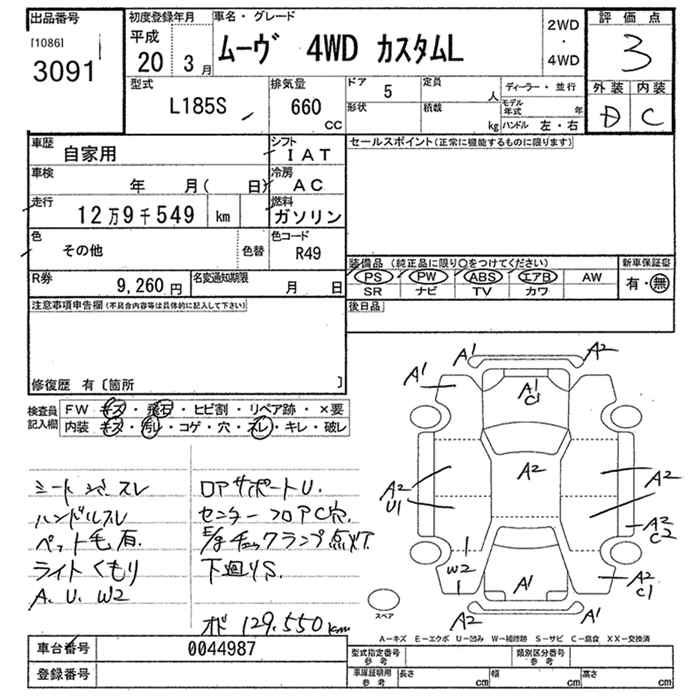 出品番号
[1086]
3091
初度登録年月
平成
20 3月
車名・グレード
ムーヴ 4WD カスタムL
2WD
・
4WD
評価点
3
外装 内装
D C
型式
L185S
排気量
660
CC
ドア 5
定員 人
形状
積載 kg
ディーラー・並行
モデル年式 年
ハンドル 左・右
車歴
自家用
シフト
IAT
車検
年 月( 日)
冷房
AC
走行
12万9千549 km
燃料
ガソリン
色
その他
色替
色コード
R49
R券
9,260円
名変通知期限
月 日
セールスポイント(正常に機能するものに限ります)
装備品(純正品に限り○をつけてください)
新車保証書
PS PW ABS エアB AW
SR ナビ TV カワ
有・無
後日品
注意事項申告欄(不具合内容等は具体的に記入して下さい)
修復歴 有〔箇所 〕
検査員
記入欄
FW キズ・飛石・ヒビ割・リペア跡・×要
内装 キズ・汚レ・コゲ・穴・スレ・キレ・破レ
シートシミスレ
ハンドルスレ
ペット毛有
ライトくもり
A.U.W2
ロアサポートU.
センターフロアC穴
E/gチェックランプ点灯
下廻りS.
オド 129.550km
A1 A2
A1
A1
C1
A2
A2
U1
A2
A2
C2
W2
A1
A2
C1
A2 A1
スペア
A―キズ E―エクボ U―凹み W―補修跡 S―サビ C―腐食 XX―交換済
車台番号
0044987
登録番号
型式指定番号
参考
類別区分番号
参考
車庫証明用
参考
長さ cm
幅 cm
高さ cm